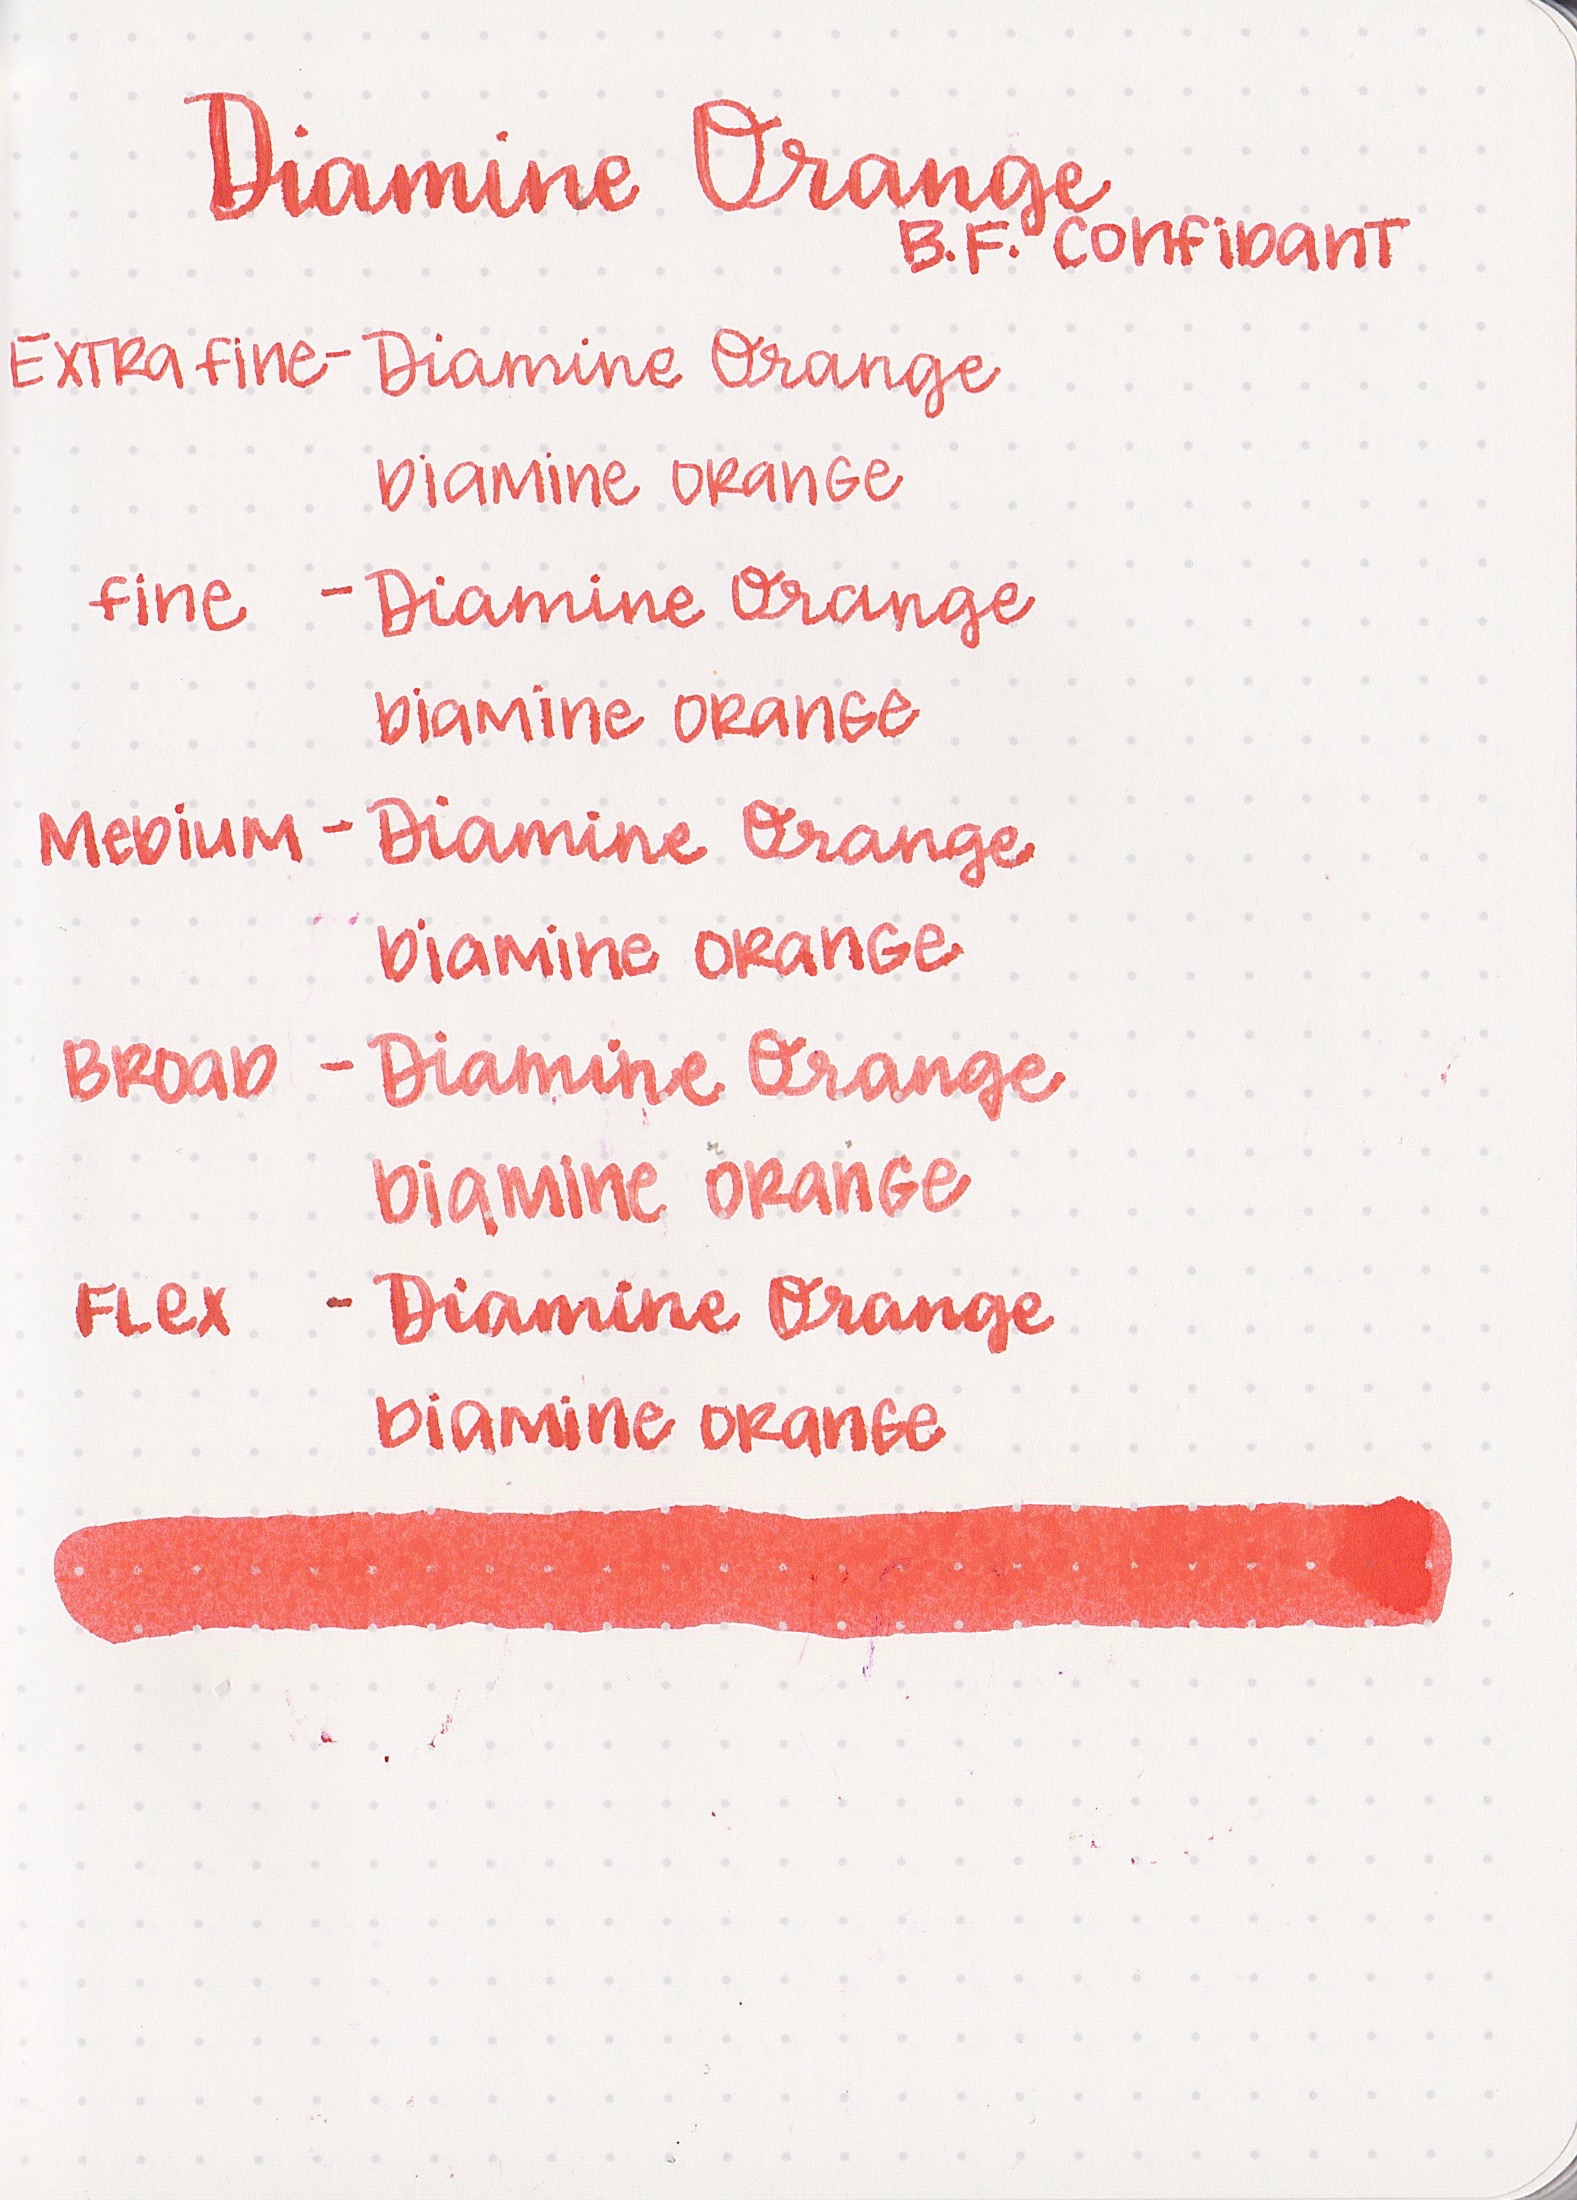 Diamine Orange
B.F. Confidant
Extra fine - Diamine Orange
Diamine Orange
fine - Diamine Orange
Diamine Orange
Medium - Diamine Orange
Diamine Orange
Broad - Diamine Orange
Diamine Orange
Flex - Diamine Orange
Diamine Orange